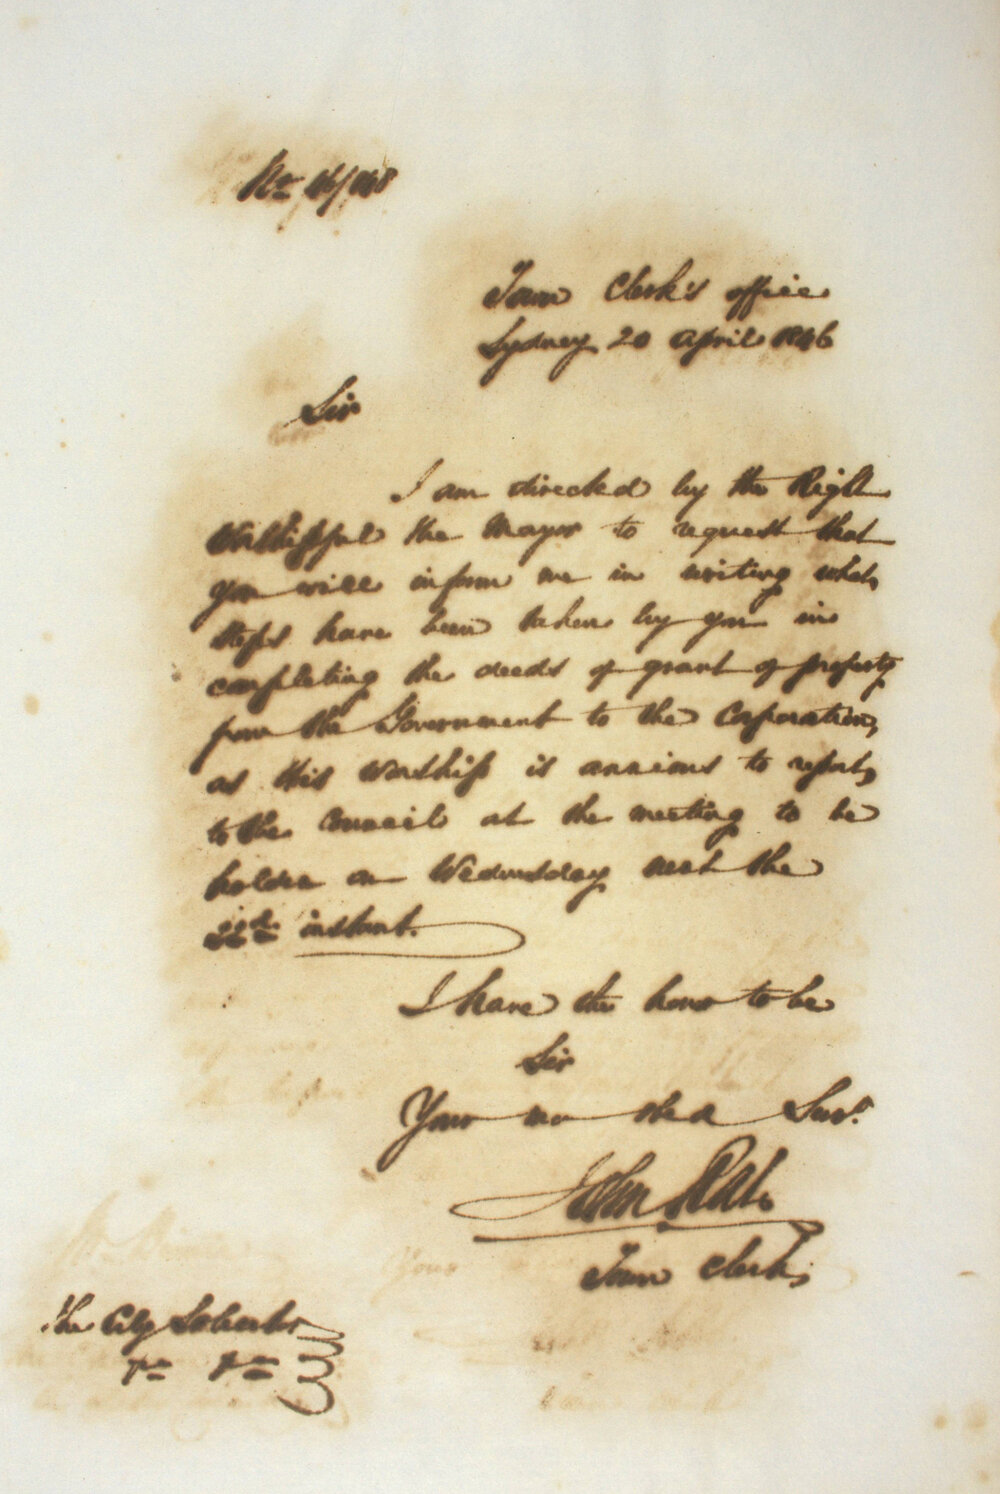 No 46/148
Town Clerk's office
Sydney 20 April 1846
Sir
I am directed by the Right
Worshipful the Mayor to request that
you will inform me in writing what
steps have been taken by you in
completing the deeds of grant of property
from the Government to the Corporation,
as His Worship is anxious to report
to the Council at the meeting to be
holden on Wednesday next the
22d instant.
I have the honor to be
Sir
Your mo obed Servt.
John
Town Clerk
The City Solicitor